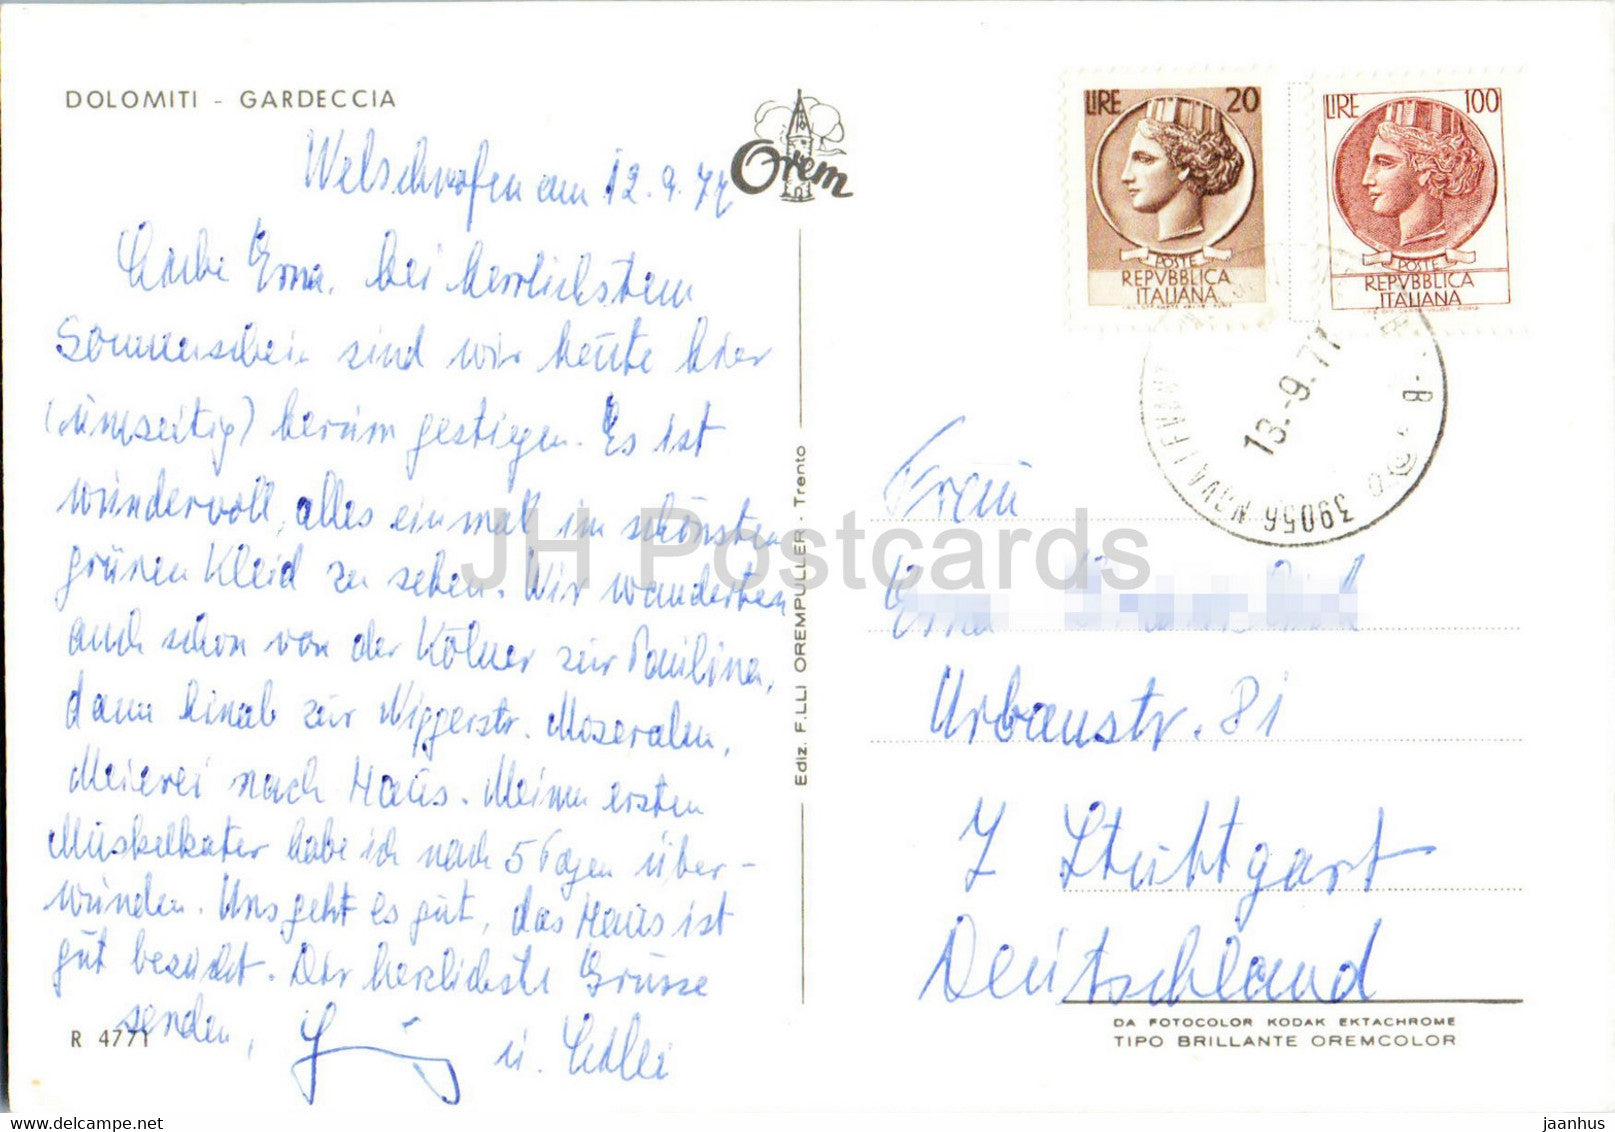 DOLOMITI - GARDECCIA
Orem
Welschnofen am 12.9.77
Liebe Erna, bei herrlichstem
Sonnenschein sind wir heute hier
(unzeitig) herum gestiegen. Es ist
wundervoll, alles einmal im schönsten
grünen Kleid zu sehen. Wir wanderten
auch schon von der Kölner zur Paulina,
dann hinab zur Niggerstr. Moseralm,
Meierei nach Haus. Meinen ersten
Muskelkater habe ich nach 5 Tagen über-
wunden. Uns geht es gut, das Haus ist
gut besucht. Dir herzlichste Grüsse
senden,
u.
R 4771
Ediz. F.LLI OREMPULLER - Trento
LIRE 20
POSTE
REPVBBLICA
ITALIANA
LIRE 100
POSTE
REPVBBLICA
ITALIANA
13.-9.77
39056 NOVA LEVANTE
Frau
Erna
Urbanstr. 81
7 Stuttgart
Deutschland
DA FOTOCOLOR KODAK EKTACHROME
TIPO BRILLANTE OREMCOLOR
JH Postcards
jaanhus
delcampe.net